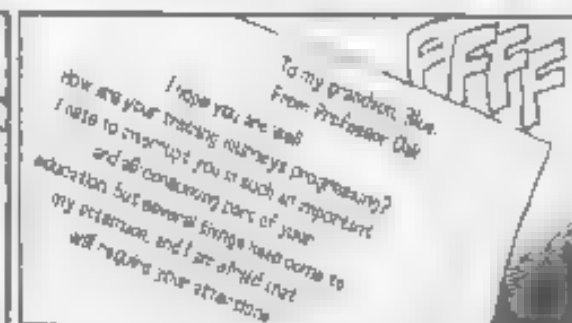 FFFF
To my grandson, Blue.
From Professor Oak
I hope you are well
How are your training journeys progressing?
I hate to interrupt you in such an important
and all-consuming part of your
education, but several things have come to
my attention, and I am afraid that
will require your attention